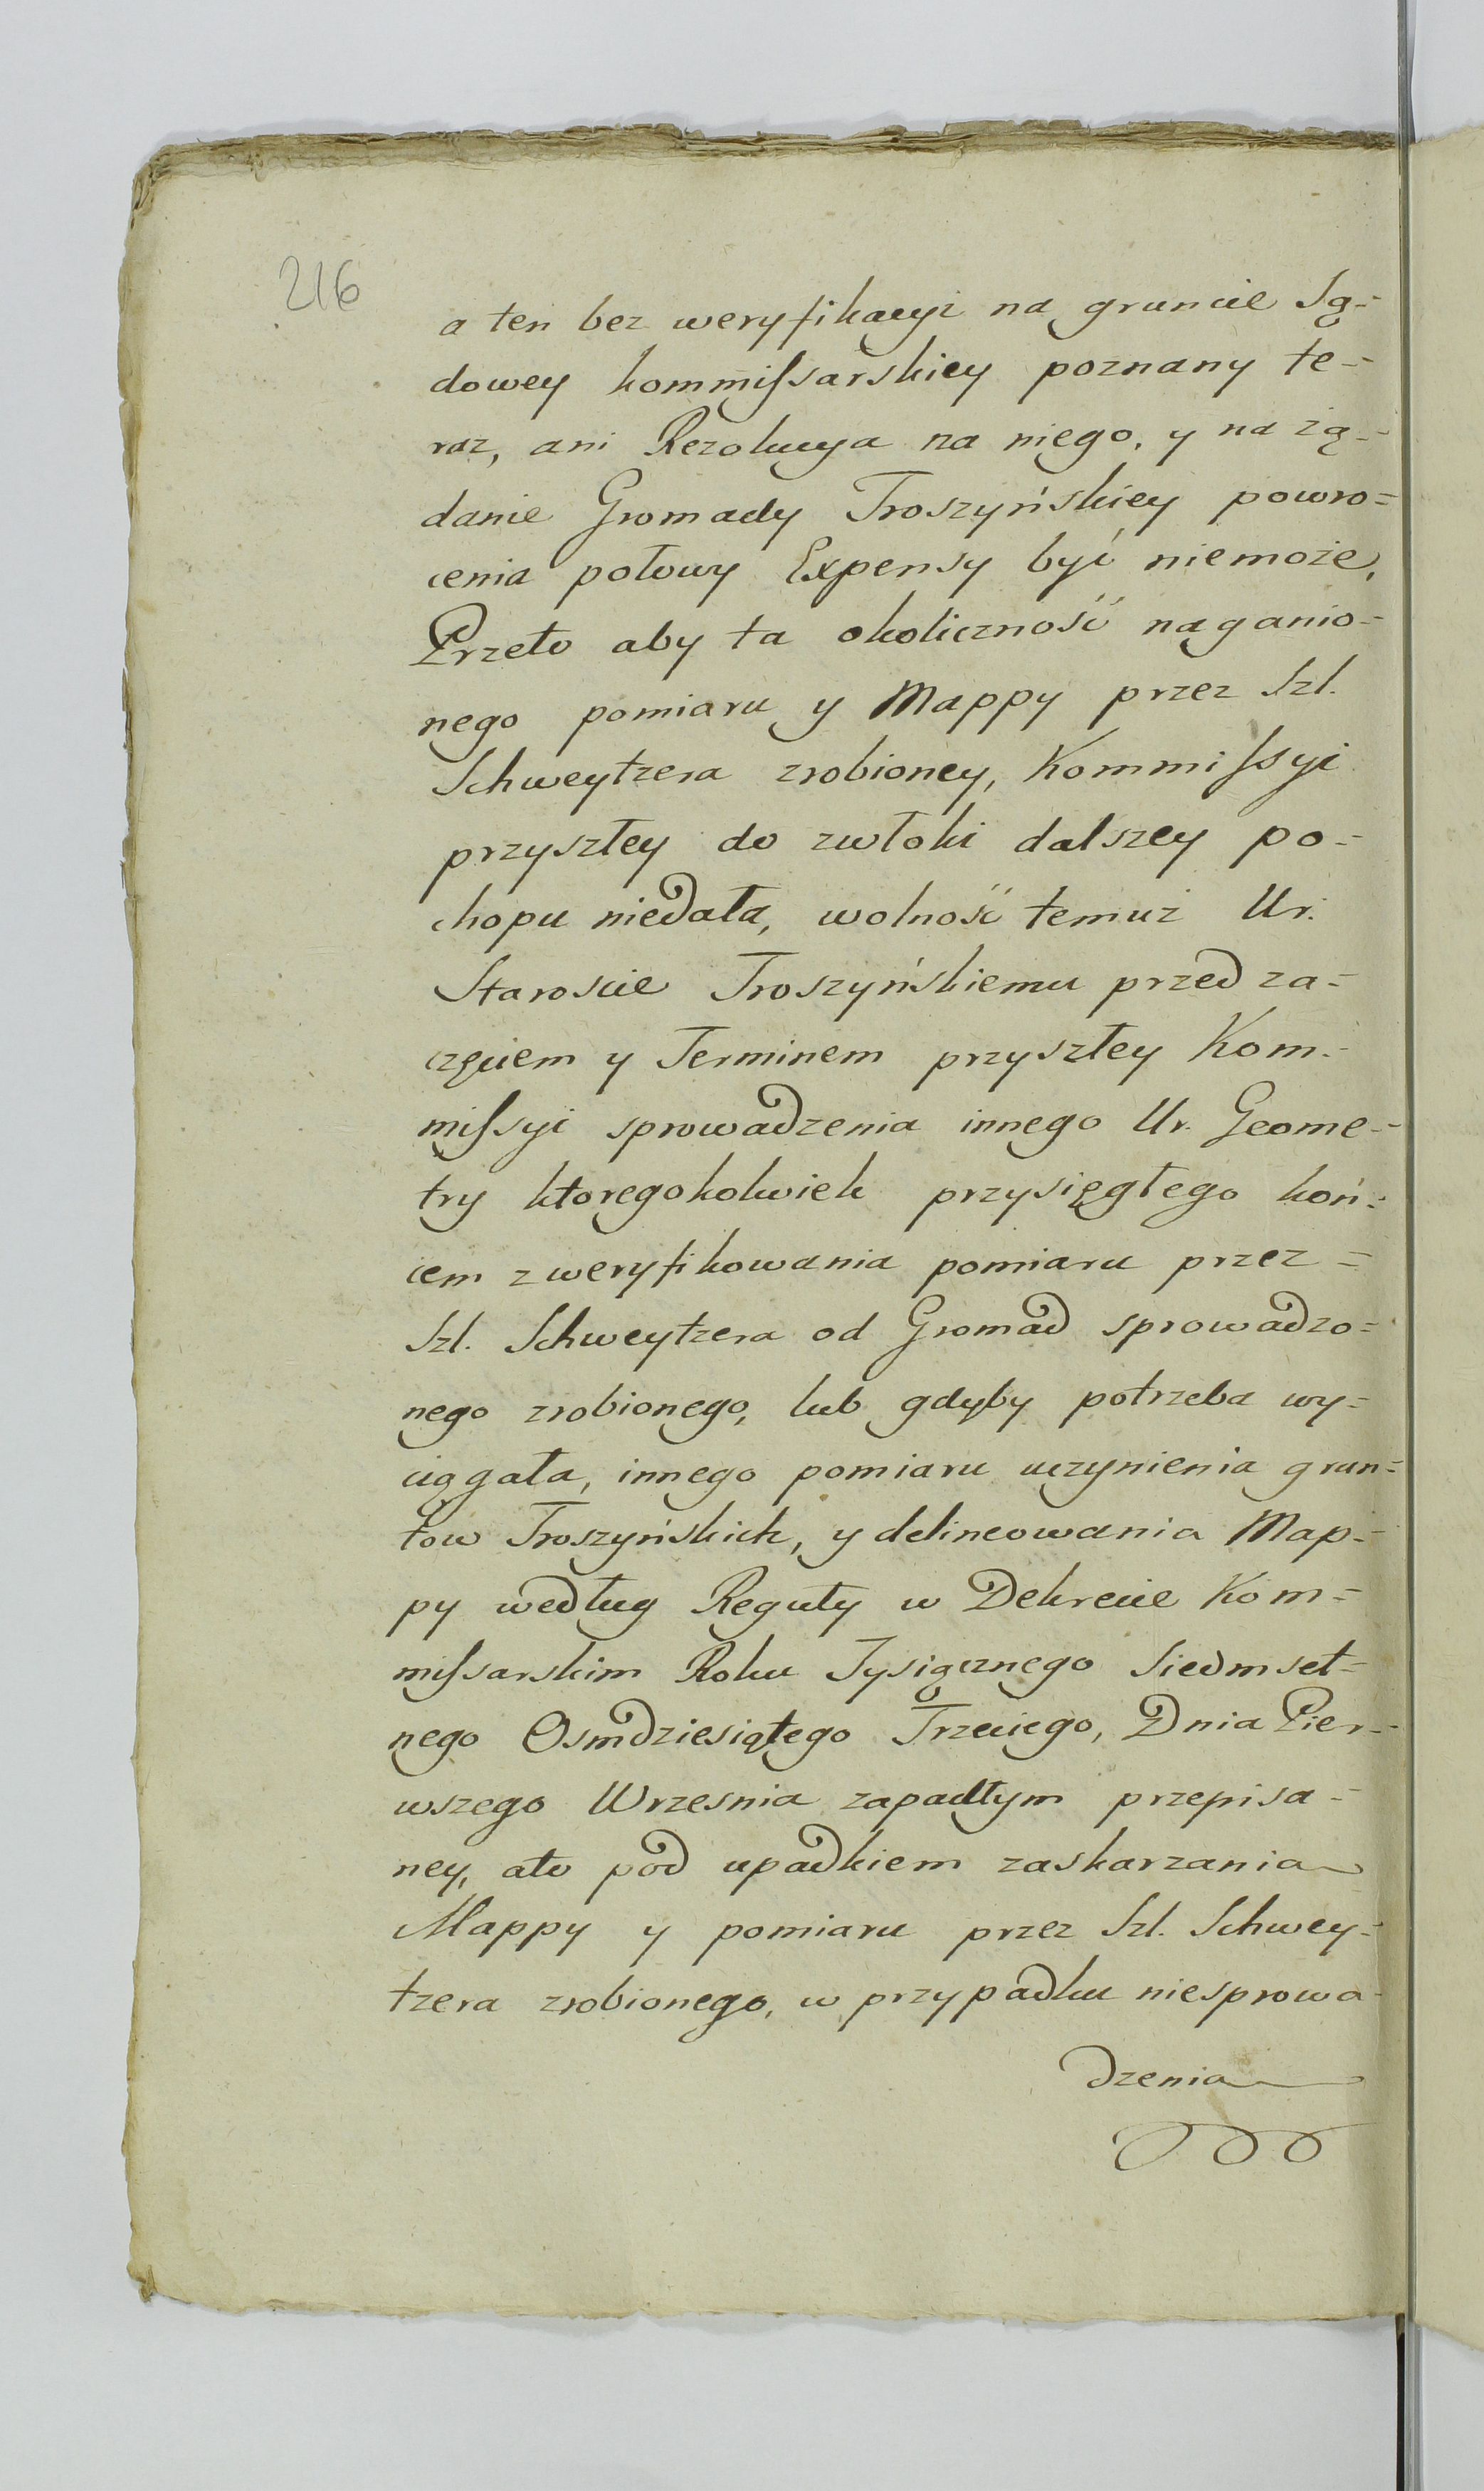 216
a ten bez weryfikacyi na gruncie Są=
dowey kommissarskiey poznany te=
raz, ani Rezolucya na niego, y na żą=
danie Gromady Troszyńskiey powro=
cenia połowy Expensy być niemoże,
Przeto aby ta okoliczność naganio=
nego pomiaru y Mappy przez Szl.
Schweytzera zrobioney, Kommissyi
przyszłey do zwłoki dalszey po=
chopu niedała, wolność temuż Ur.
Staroscie Troszyńskiemu przed za=
częciem y Terminem przyszłey Kom=
missyi sprowadzenia innego Ur. Geome=
try ktoregokolwiek przysięgłego koń=
cem zweryfikowania pomiaru przez =
Szl. Schweytzera od Gromad sprowadzo=
nego zrobionego, lub gdyby potrzeba wy=
ciągała, innego pomiaru uczynienia grun=
tow Troszyńskich, y delineowania Map=
py według Reguły w Dekrecie Kom=
missarskim Roku Tysiącznego Siedmset=
nego Osmdziesiątego Trzeciego, Dnia Pier=
wszego Wrzesnia zapadłym przepisa=
ney, ato pod upadkiem zaskarzania
Mappy y pomiaru przez Szl. Schwey=
tzera zrobionego, w przypadku niesprowa
dzenia